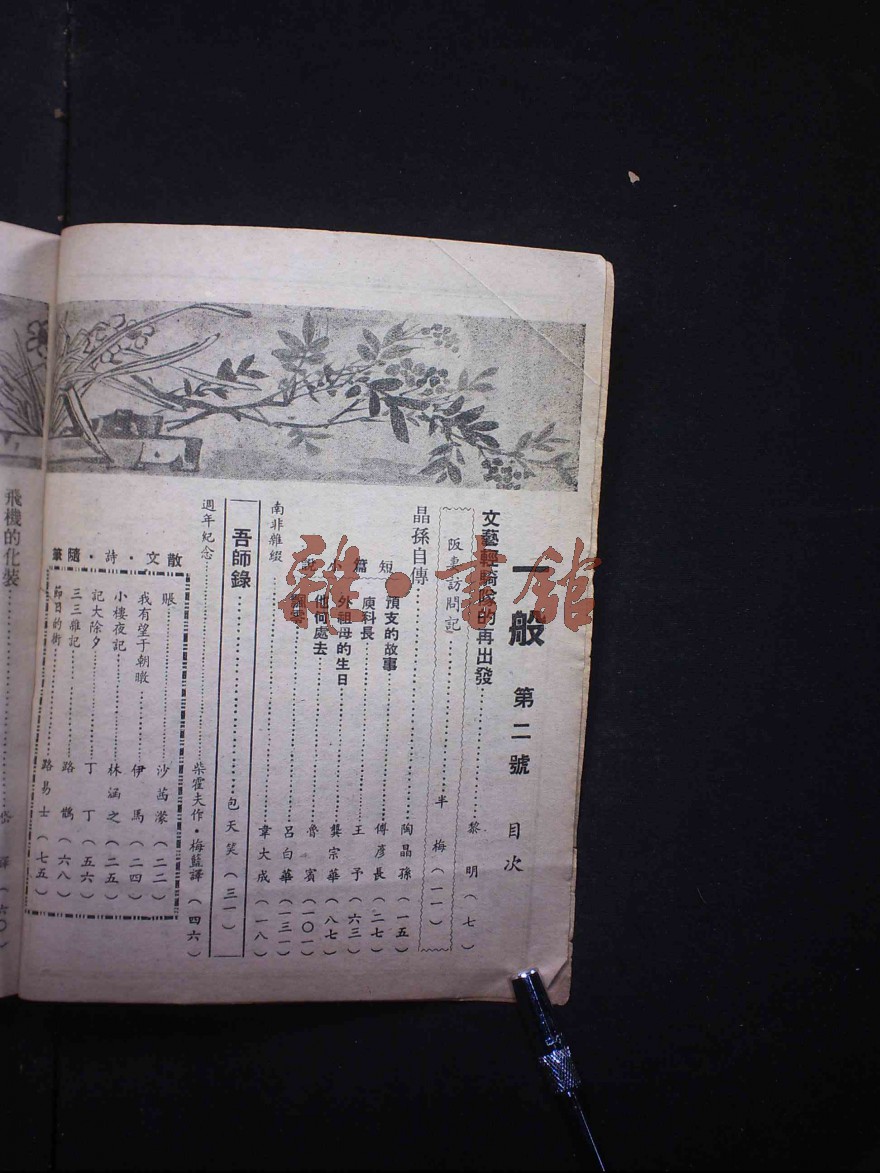 一般 第二號 目次
文藝輕騎隊的再出發 黎明(七)
阪妻訪問記 半梅(一一)
晶孫自傳 陶晶孫(一五)
短篇小說
預支的故事 傅彥長(二七)
庾科長 王予(六三)
外祖母的生日 龔宗華(八七)
他何處去 魯賓(一〇一)
呂白華(一三一)
南非雜綴 韋大成(一八)
吾師錄 包天笑(三一)
週年紀念 柴霍夫作・梅藍譯(四六)
散文・詩・隨筆
賬 沙茜濛(二二)
我有望于朝暾 伊馬(二四)
小樓夜記 林涵之(二五)
記大除夕 丁丁(五六)
三三雜記 路鵲(六八)
節日的街 路易士(七五)
飛機的化裝 岱譯(六〇)
雜・書館